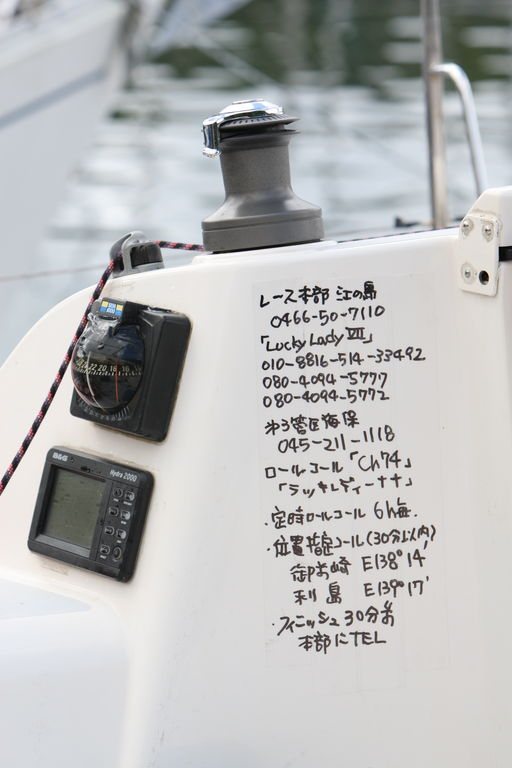 レース本部 江の島
0466-50-7110
「Lucky Lady Ⅶ」
010-8816-514-33492
080-4094-5777
080-4094-5772
第3管区海保
045-211-1118
ロールコール「Ch74」
「ラッキレディーナナ」
・定時ロールコール 6h毎.
・位置指定コール(30分以内)
御前崎 E138°14'
利島 E139°17'
・フィニッシュ30分前
本部にTEL
B&G
Hydra 2000